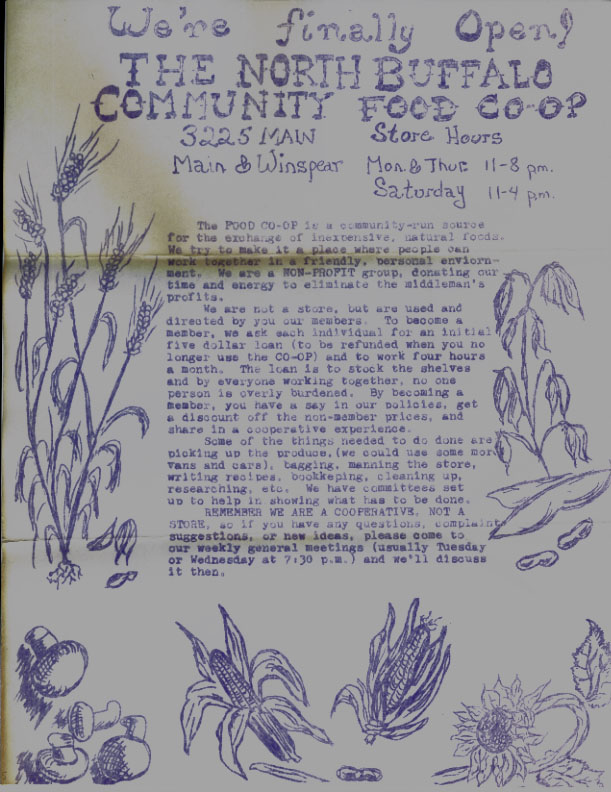 We're finally Open!
THE NORTH BUFFALO
COMMUNITY FOOD CO-OP
3225 MAIN Store Hours
Main & Winspear Mon & Thur 11-8 pm.
Saturday 11-4 p.m.
The FOOD CO-OP is a community-run source
for the exchange of inexpensive, natural foods.
We try to make it a place where people can
work together in a friendly, personal enviorn-
ment. We are a NON-PROFIT group, donating our
time and energy to eliminate the middleman's
profits.
We are not a store, but are used and
directed by you our members. To become a
member, we ask each individual for an initial
five dollar loan (to be refunded when you no
longer use the CO-OP) and to work four hours
a month. The loan is to stock the shelves
and by everyone working together, no one
person is overly burdened. By becoming a
member, you have a say in our policies, get
a discount off the non-member prices, and
share in a cooperative experience.
Some of the things needed to do done are
picking up the produce, (we could use some more
vans and cars), bagging, manning the store,
writing recipes, bookkeping, cleaning up,
researching, etc. We have committees set
up to help in showing what has to be done.
REMEMBER WE ARE A COOPERATIVE, NOT A
STORE, so if you have any questions, complaint
suggestions, or new ideas, please come to
our weekly general meetings (usually Tuesday
or Wednesday at 7:30 p.m.) and we'll discuss
it then.